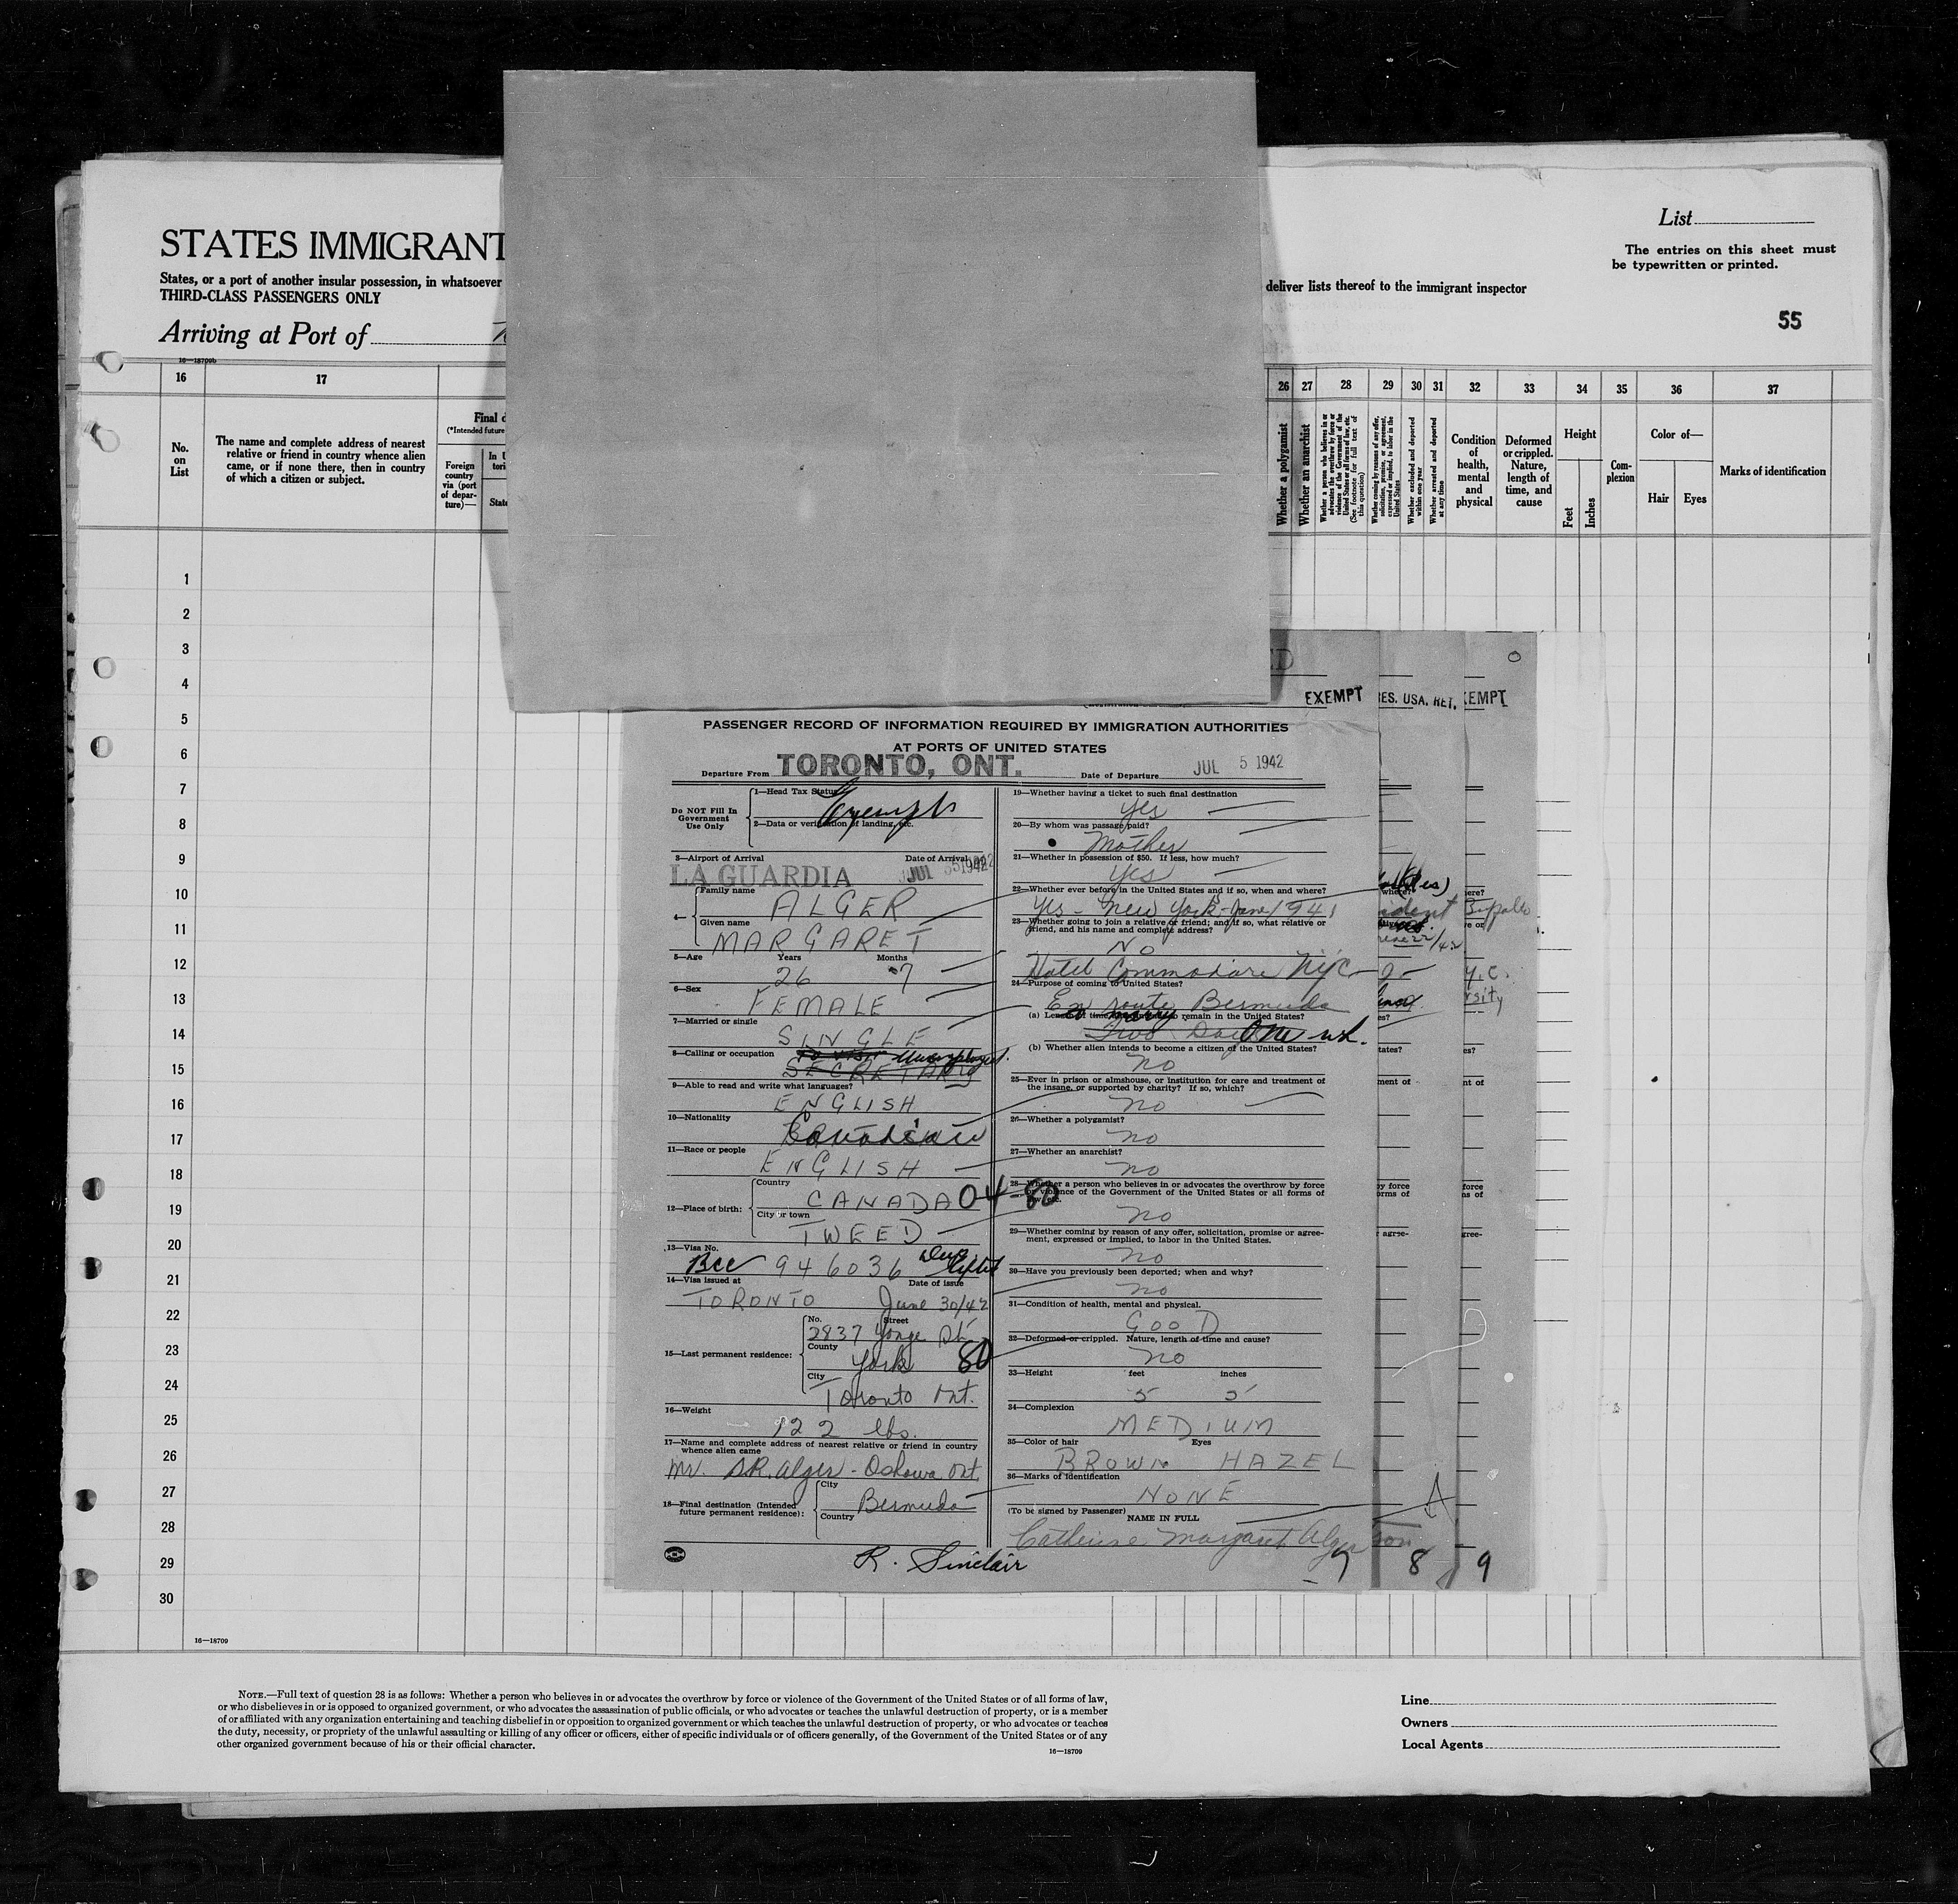 STATES IMMIGRANT
List
The entries on this sheet must
be typewritten or printed.
States, or a port of another insular possession, in whatsoever
deliver lists thereof to the immigrant inspector
THIRD-CLASS PASSENGERS ONLY
Arriving at Port of
55
16—18709b
16 17 26 27 28 29 30 31 32 33 34 35 36 37
No.
on
List
The name and complete address of nearest
relative or friend in country whence alien
came, or if none there, then in country
of which a citizen or subject.
Final d
(*Intended future
Foreign
country
via (port
of depar-
ture)—
In U
tori
State
Whether a polygamist
Whether an anarchist
Whether a person who believes in or
advocates the overthrow by force or
violence of the Government of the
United States or all forms of law, etc.
(See footnote for full text of
this question)
Whether coming by reasons of any offer,
solicitation, promise, or agreement,
expressed or implied, to labor in the
United States
Whether excluded and deported
within one year
Whether arrested and deported
at any time
Condition
of
health,
mental
and
physical
Deformed
or crippled.
Nature,
length of
time, and
cause
Height
Feet
Inches
Com-
plexion
Color of—
Hair
Eyes
Marks of identification
1
2
3
4
5
6
7
8
9
10
11
12
13
14
15
16
17
18
19
20
21
22
23
24
25
26
27
28
29
30
16—18709
EXEMPT
RES. USA. RET.
EMPT
PASSENGER RECORD OF INFORMATION REQUIRED BY IMMIGRATION AUTHORITIES
AT PORTS OF UNITED STATES
Departure From TORONTO, ONT.
Date of Departure JUL 5 1942
Do NOT Fill In
Government
Use Only
1—Head Tax Status
Exempt
2—Data or verification of landing, etc.
3—Airport of Arrival
Date of Arrival
LA GUARDIA JUL 5 1942
4—
Family name
ALGER
Given name
MARGARET
5—Age Years Months
26 7
6—Sex
FEMALE
7—Married or single
SINGLE
8—Calling or occupation
Unemployed.
SECRETARY
9—Able to read and write what languages?
ENGLISH
10—Nationality
Canadian
11—Race or people
ENGLISH
12—Place of birth:
Country
CANADA 04-80
City or town
TWEED
13—Visa No.
Bcc 946036 lifted
14—Visa issued at
Date of issue
TORONTO June 30/42
15—Last permanent residence:
No. Street
2837 Yonge St.
County
York 80
City
Toronto Ont.
16—Weight
122 lbs.
17—Name and complete address of nearest relative or friend in country
whence alien came
Mr. S.R. Alger - Oshawa Ont.
18—Final destination (Intended
future permanent residence):
City
Bermuda
Country
R. Sinclair
19—Whether having a ticket to such final destination
Yes
20—By whom was passage paid?
Mother
21—Whether in possession of $50. If less, how much?
Yes
22—Whether ever before in the United States and if so, when and where?
Yes - New York - June/1941
23—Whether going to join a relative or friend; and if so, what relative or
friend, and his name and complete address?
NO
Hotel Commodore NYC
24—Purpose of coming to United States?
En route Bermuda
(a) Length of time alien intends to remain in the United States?
Two Days One wk.
(b) Whether alien intends to become a citizen of the United States?
no
25—Ever in prison or almshouse, or institution for care and treatment of
the insane, or supported by charity? If so, which?
no
26—Whether a polygamist?
no
27—Whether an anarchist?
no
28—Whether a person who believes in or advocates the overthrow by force
or violence of the Government of the United States or all forms of
law, etc.
no
29—Whether coming by reason of any offer, solicitation, promise or agree-
ment, expressed or implied, to labor in the United States.
no
30—Have you previously been deported; when and why?
no
31—Condition of health, mental and physical.
GOOD
32—Deformed or crippled. Nature, length of time and cause?
no
33—Height feet inches
5 5
34—Complexion
MEDIUM
35—Color of hair Eyes
BROWN HAZEL
36—Marks of identification
NONE
(To be signed by Passenger)
NAME IN FULL
Catherine Margaret Alger
7 8 9
NOTE.—Full text of question 28 is as follows: Whether a person who believes in or advocates the overthrow by force or violence of the Government of the United States or of all forms of law,
or who disbelieves in or is opposed to organized government, or who advocates the assassination of public officials, or who advocates or teaches the unlawful destruction of property, or is a member
of or affiliated with any organization entertaining and teaching disbelief in or opposition to organized government or which teaches the unlawful destruction of property, or who advocates or teaches
the duty, necessity, or propriety of the unlawful assaulting or killing of any officer or officers, either of specific individuals or of officers generally, of the Government of the United States or of any
other organized government because of his or their official character.
16—18709
Line
Owners
Local Agents